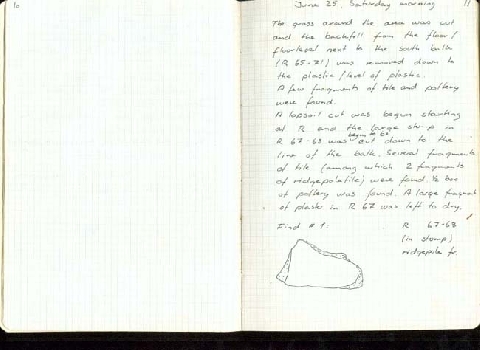 10
June 25, Saturday morning 11
The grass around the area was cut
and the backfill from the floor/
floorlevel next to the south balk
(R 65-71) was removed down to
the plastic/level of plastic.
A few fragments of tile and pottery
were found.
A topsoil cut was begun starting
at R and the large strip in
begun to be
R 67-68 was cut down to the
line of the balk. Several fragments
of tile (among which 2 fragments
of ridgepoletile) were found.
of pottery was found. A large fragment
of plaster in R 67 was left to dry.
Find # 1: R 67-68
(in stomp)
ridgepole fr.